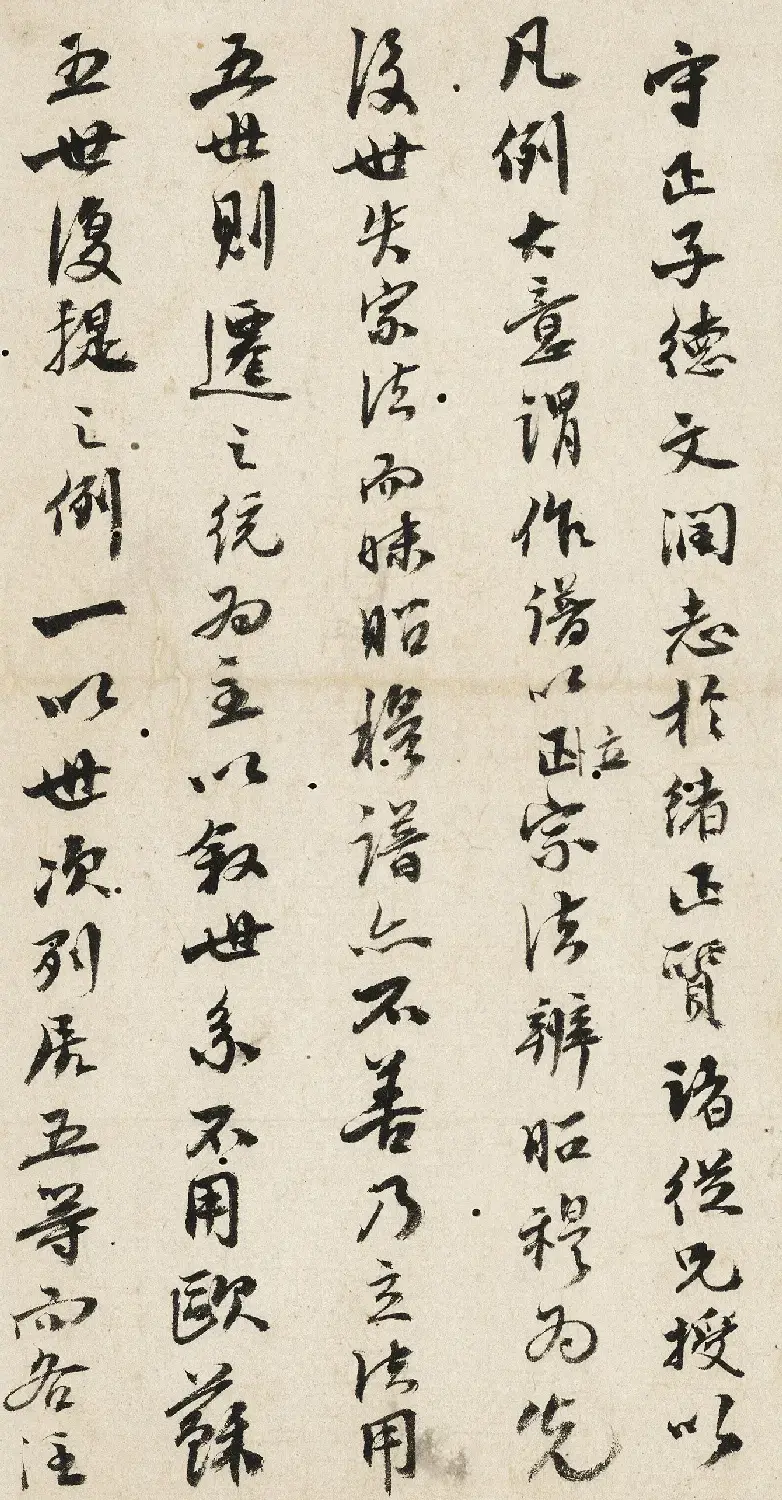 守正子德文潤志於緒正質諸從兄授以
凡例大意謂作譜以正立宗法辨昭穆為先
後世失宗法而昧昭穆譜亦不善乃立法用
五世則遷之統為主以敘世系不用歐蘇
五世復提之例一以世次列居五等而各注